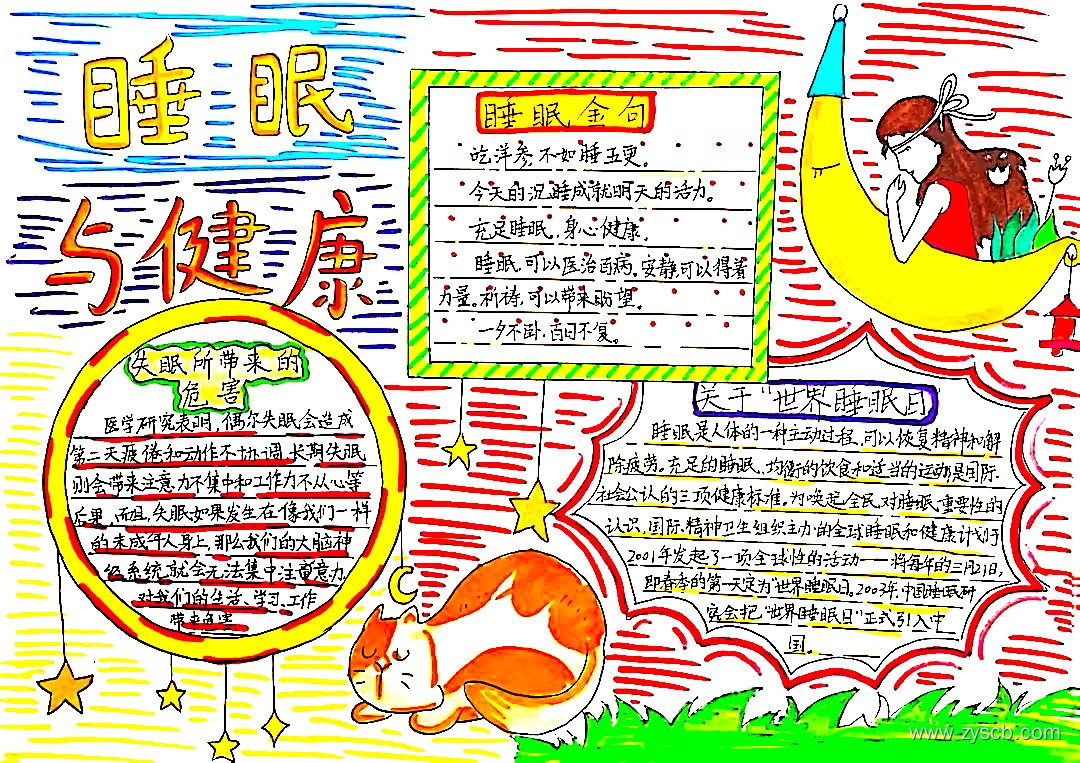 睡眠
与健康
睡眠金句
吃洋参不如睡五更。
今天的沉睡成就明天的活力。
充足睡眠，身心健康。
睡眠，可以医治百病。安静可以得着
力量。祈祷，可以带来盼望。
一夕不卧，百日不复。
失眠所带来的
危害
医学研究表明，偶尔失眠会造成
第二天疲倦和动作不协调，长期失眠
则会带来注意力不集中和工作力不从心等
后果，而且，失眠如果发生在像我们一样
的未成年人身上，那么我们的大脑神
经系统就会无法集中注意力，
对我们的生活、学习、工作
带来危害
关于“世界睡眠日
睡眠是人体的一种主动过程，可以恢复精神和解
除疲劳。充足的睡眠、均衡的饮食和适当的运动是国际
社会公认的三项健康标准。为唤起全民对睡眠重要性的
认识，国际精神卫生组织主办的全球睡眠和健康计划于
2001年发起了一项全球性的活动——将每年的三月21日，
即春季的第一天定为“世界睡眠日。2003年，中国睡眠研
究会把“世界睡眠日”正式引入中
国。
www.zyscb.com